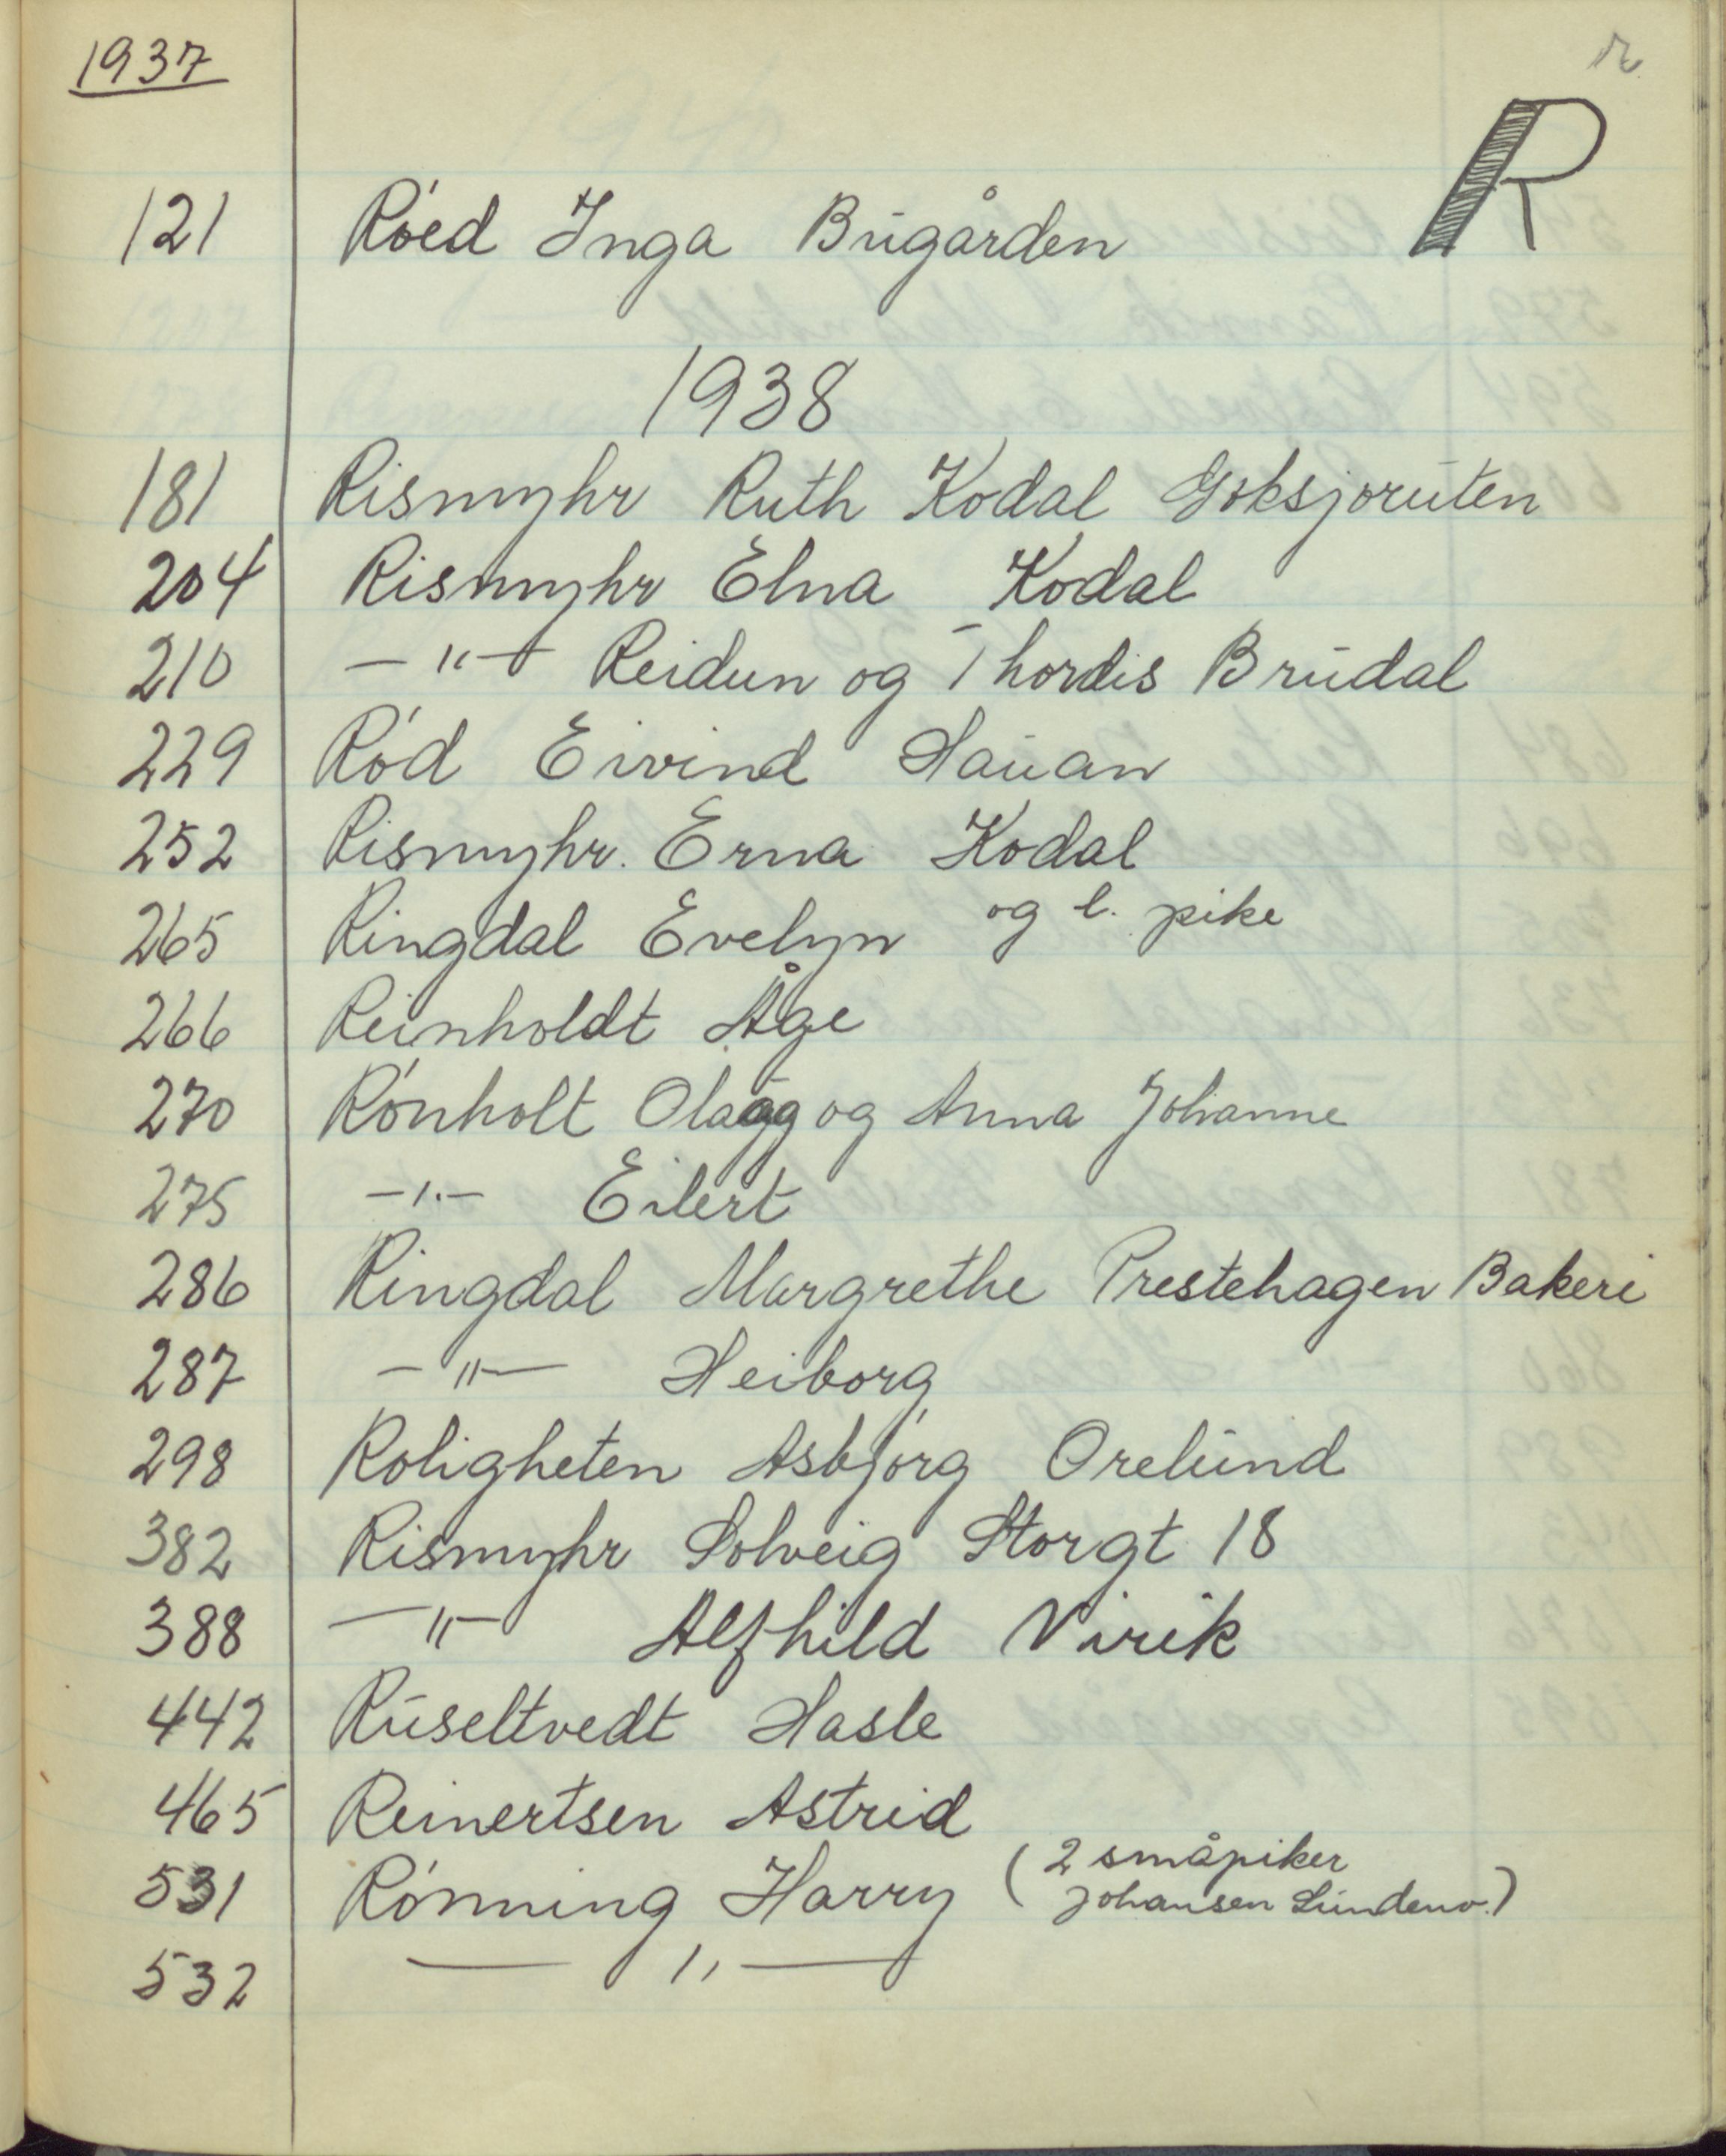 1937
r
R
121 Róed Inga Bugården
1938
181 Rismyhr Ruth Kodal Goksjoruten
204 Rismyhr Elna Kodal
210 —"— Reidun og Thordis Brudal
229 Ród Eivind Hauan
252 Rismyhr. Erna Kodal
265 Ringdal Evelyn og l. pike
266 Reinholdt Åge
270 Rónholt Olaag og Anna Johanne
275 —"— Eilert
286 Ringdal Margrethe Prestehagen Bakeri
287 —"— Heiborg
298 Roligheten Asbjórg Orelund
382 Rismyhr Solveig Storgt 18
388 —"— Alfhild Virik
442 Ruseltvedt Hasle
465 Reinertsen Astrid
531 Rónning Harry (2 småpiker
Johansen Lundenv.)
532 —"—